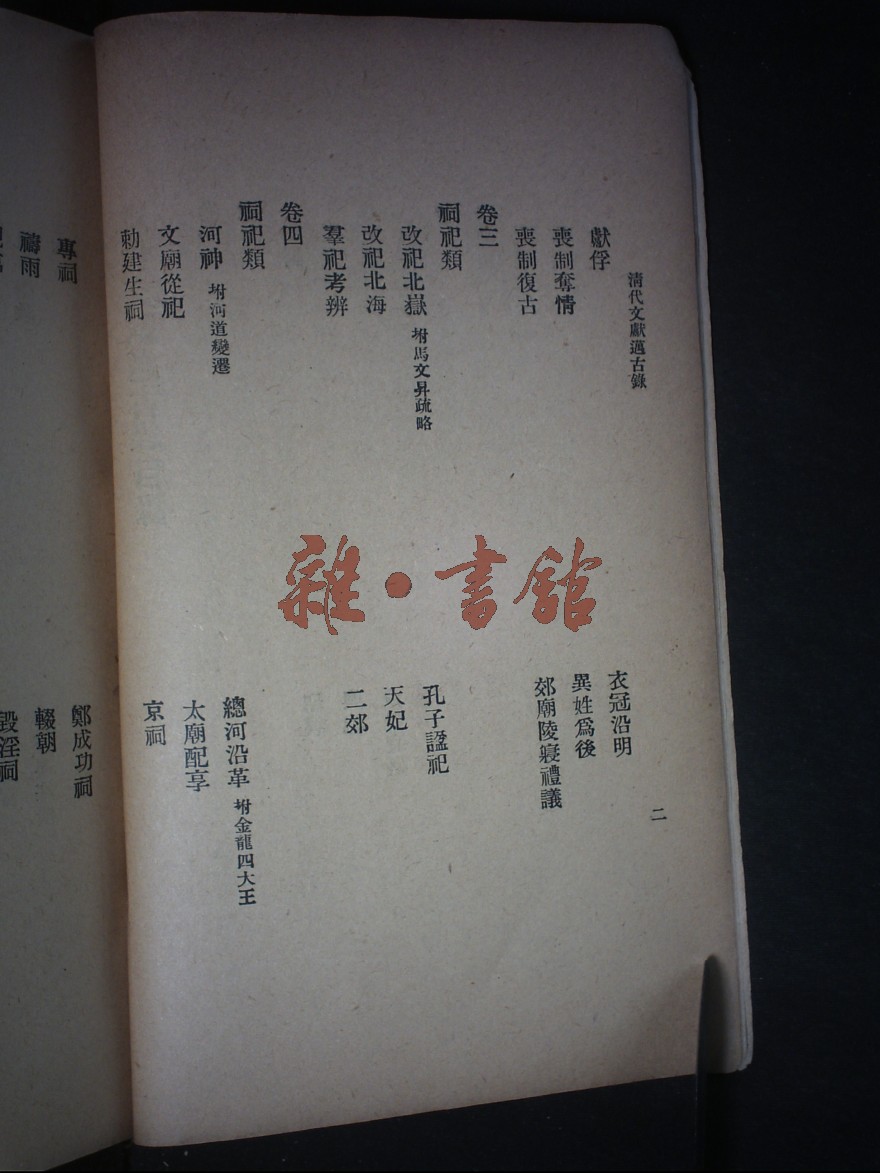 清代文獻邁古錄
二
獻俘
衣冠沿明
喪制奪情
異姓爲後
喪制復古
郊廟陵寢禮議
卷三
祠祀類
改祀北嶽 坿馬文昇疏略
孔子諡祀
改祀北海
天妃
羣祀考辨
二郊
卷四
祠祀類
河神 坿河道變遷
總河沿革 坿金龍四大王
文廟從祀
太廟配享
勅建生祠
京祠
專祠
鄭成功祠
禱雨
輟朝
毀淫祠
雜·書館